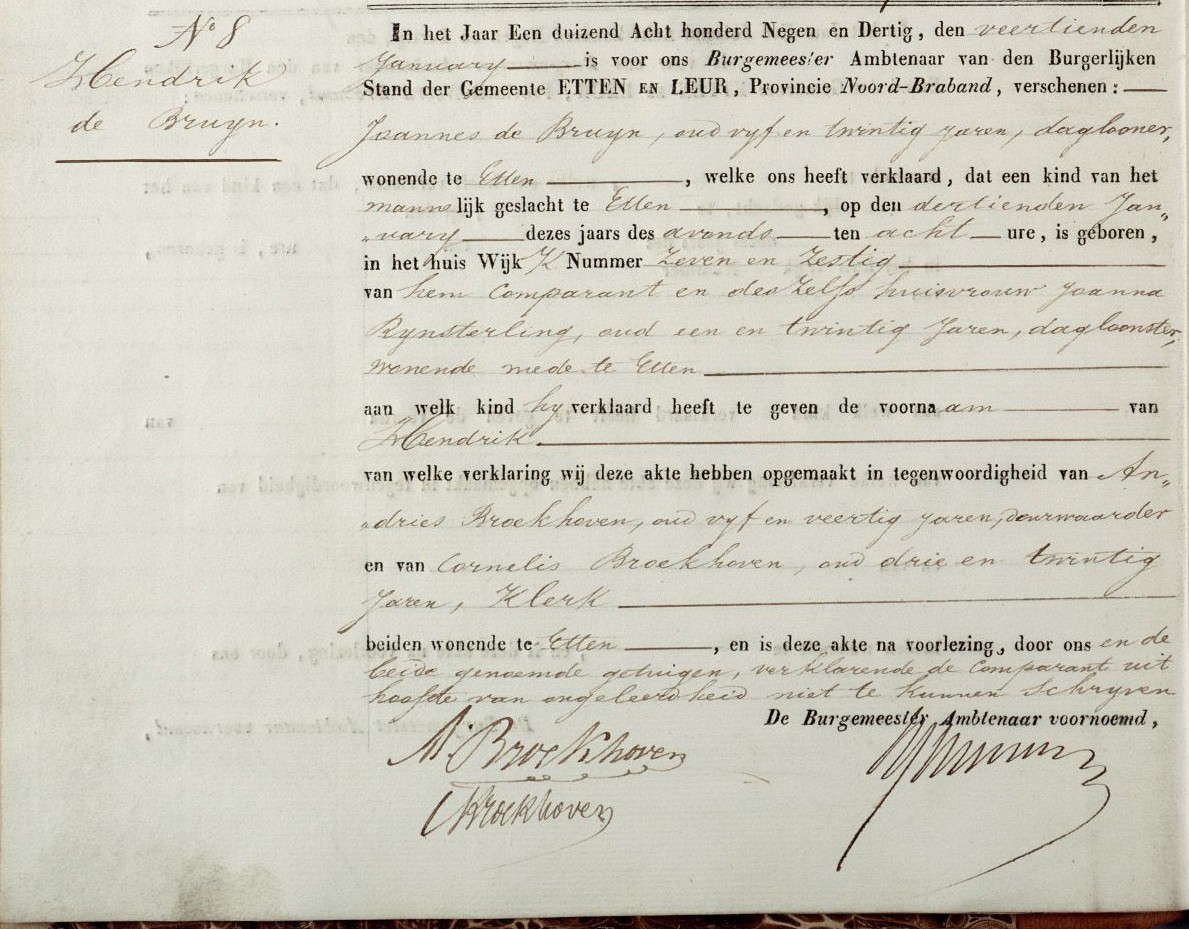 N° 8
Hendrik
de Bruyn.
In het Jaar Een duizend Acht honderd Negen en Dertig, den veertienden
January is voor ons Burgemeester Ambtenaar van den Burgerlijken
Stand der Gemeente ETTEN EN LEUR, Provincie Noord-Braband, verschenen:
Joannes de Bruyn, oud vyf en twintig jaren, daglooner,
wonende te Etten, welke ons heeft verklaard, dat een kind van het
mannelijk geslacht te Etten, op den dertienden Jan„
„uary dezes jaars des avonds ten acht ure, is geboren,
in het huis Wijk K Nummer Zeven en Zestig
van hem Comparant en deszelfs huisvrouw Joanna
Rynsterling, oud een en twintig Jaren, dagloonster,
wonende mede te Etten
aan welk kind hy verklaard heeft te geven de voornaam van
Hendrik.
van welke verklaring wij deze akte hebben opgemaakt in tegenwoordigheid van An„
„dries Broekhoven, oud vyf en veertig jaren, deurwaarder
en van Cornelis Broekhoven, oud drie en twintig
Jaren, Klerk
beiden wonende te Etten, en is deze akte na voorlezing, door ons en de
beide genoemde getuigen, verklarende de Comparant uit
hoofde van ongeleerdheid niet te kunnen Schryven
De Burgemeester Ambtenaar voornoemd,
A. Broekhoven
C Broekhoven